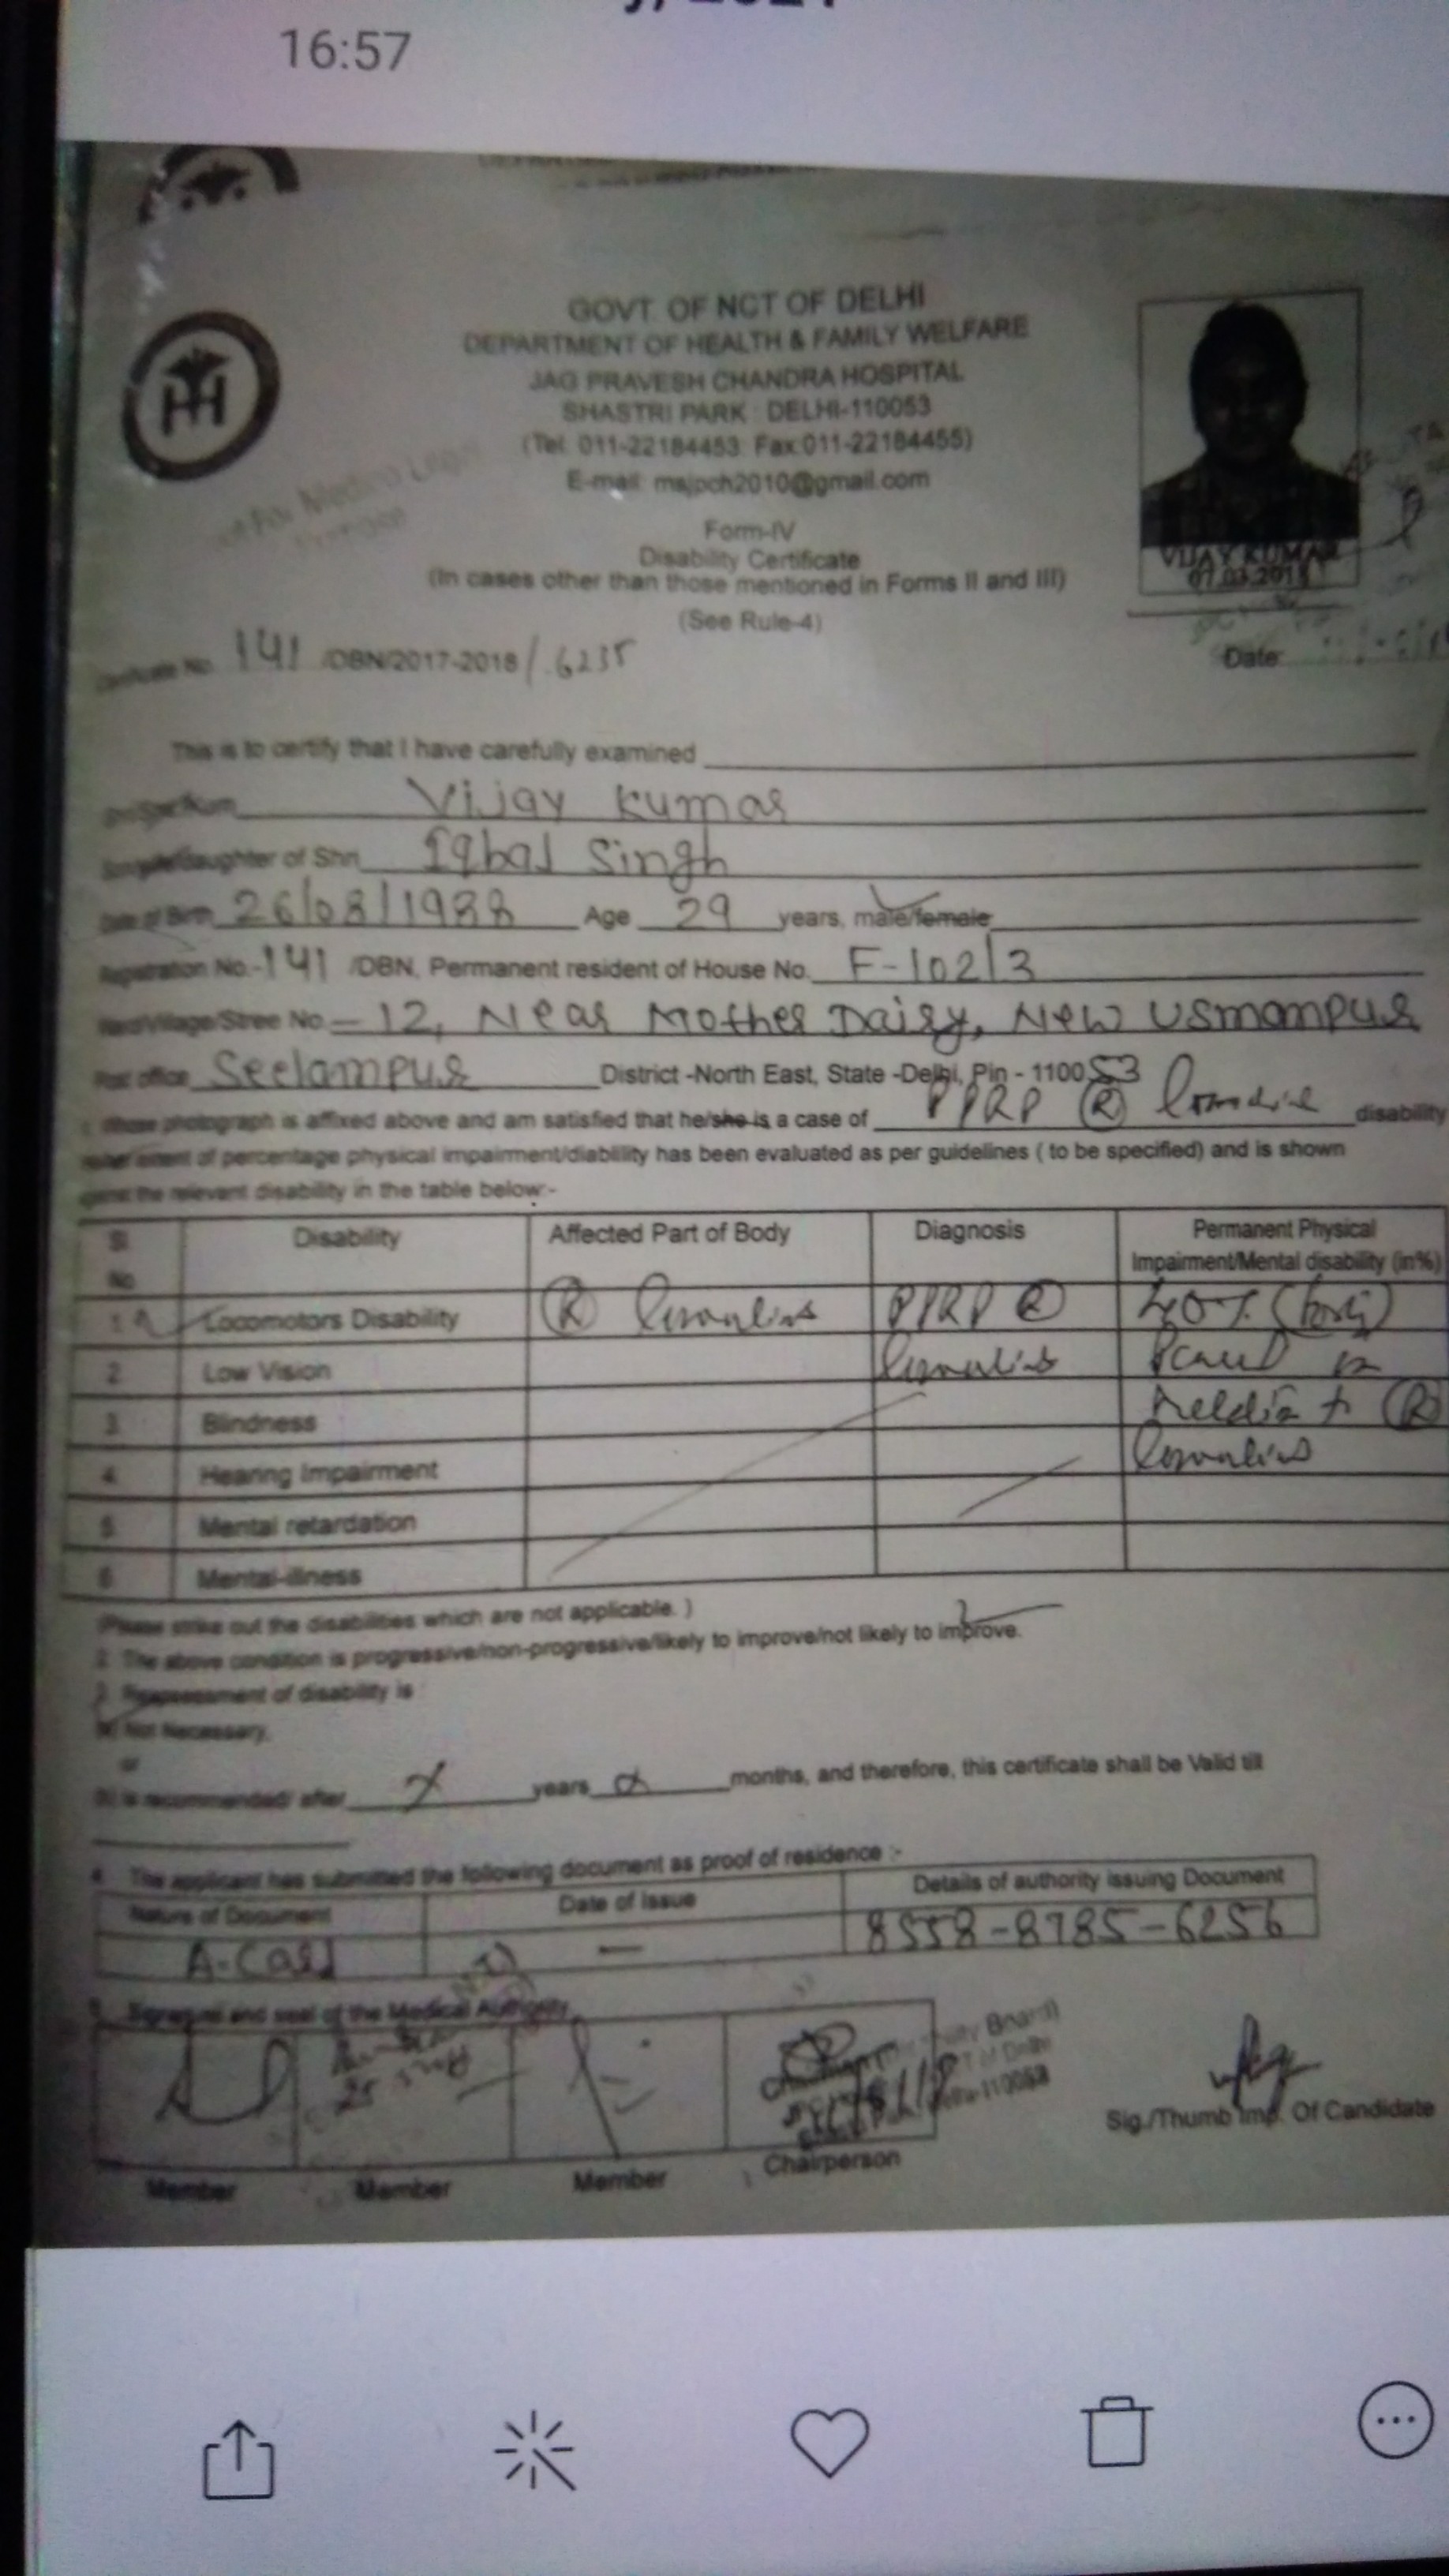 16:57
GOVT. OF NCT OF DELHI
DEPARTMENT OF HEALTH & FAMILY WELFARE
JAG PRAVESH CHANDRA HOSPITAL
SHASTRI PARK : DELHI-110053
(Tel: 011-22184453 Fax:011-22184455)
E-mail: msjpch2010@gmail.com
For Medico Legal
Form-IV
Disability Certificate
(In cases other than those mentioned in Forms II and III)
(See Rule-4)
VIJAY KUMAR
Certificate No. 141 /DBN/2017-2018/ 6235
Date:
This is to certify that I have carefully examined
Vijay Kumar
daughter of Shri Iqbal Singh
Date of Birth 26/08/1988 Age 29 years, male/female
Registration No.-141 /DBN, Permanent resident of House No. F-102/3
Ward/Village/Stree No.- 12, Near Mother Daisy, New Usmanpur
Post office Seelampur District -North East, State -Delhi, Pin - 110053
Whose photograph is affixed above and am satisfied that he/she is a case of PPRP (R) disability
extent of percentage physical impairment/diability has been evaluated as per guidelines ( to be specified) and is shown
against the relevant disability in the table below:-
Sl No Disability Affected Part of Body Diagnosis Permanent Physical Impairment/Mental disability (in%)
1 Locomotors Disability (R) PPRP (R) 40%
2 Low Vision
3 Blindness (R)
4 Hearing Impairment
5 Mental retardation
6 Mental-illness
(Please strike out the disabilities which are not applicable. )
2. The above condition is progressive/non-progressive/likely to improve/not likely to improve.
3. Reassessment of disability is :
(a) Not Necessary.
or
(b) is recommended/ after years months, and therefore, this certificate shall be Valid till
4. The applicant has submitted the following document as proof of residence :-
Nature of Document Date of Issue Details of authority issuing Document
A-Card — 8558-8785-6256
5. Signature and seal of the Medical Authority
Member Member Member Chairperson
Sig./Thumb Imp. Of Candidate